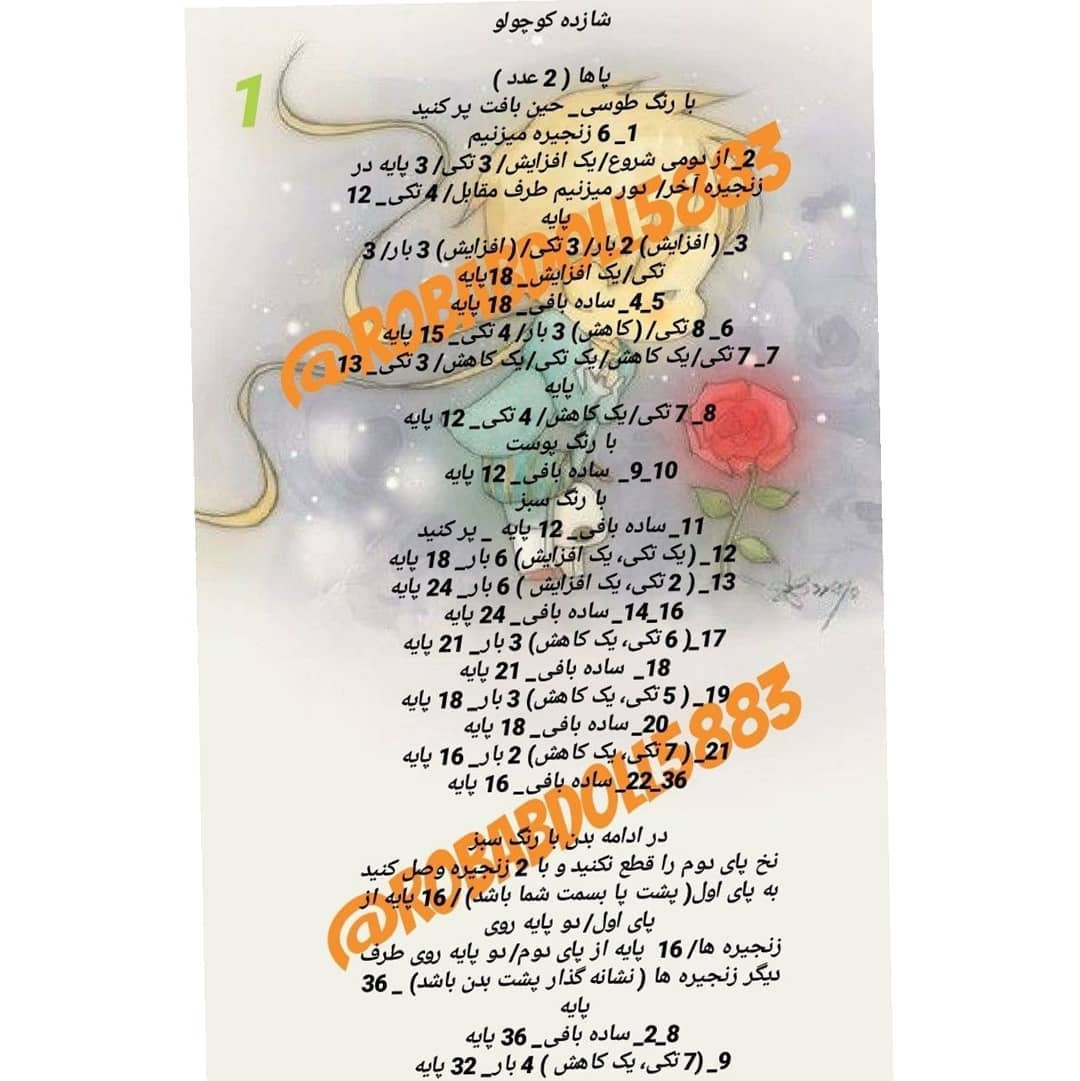 شازده کوچولو
1
پاها ( 2 عدد )
با رنگ طوسی_ حین بافت پر کنید
1_ 6 زنجیره میزنیم
2_ از دومی شروع/یک افزایش/ 3 تکی/ 3 پایه در
زنجیره آخر/ دور میزنیم طرف مقابل/ 4 تکی_ 12
پایه
3_ ( افزایش) 2 بار/ 3 تکی/ ( افزایش) 3 بار/ 3
تکی/ یک افزایش_ 18پایه
4_5_ ساده بافی_ 18 پایه
6_ 8 تکی/ ( کاهش) 3 بار/ 4 تکی_ 15 پایه
7_ 7 تکی/ یک کاهش/ یک تکی/ یک کاهش/ 3 تکی_ 13
پایه
8_ 7 تکی/ یک کاهش/ 4 تکی_ 12 پایه
با رنگ پوست
9_10_ ساده بافی_ 12 پایه
با رنگ سبز
11_ ساده بافی_ 12 پایه _ پر کنید
12_ ( یک تکی، یک افزایش) 6 بار_ 18 پایه
13_ ( 2 تکی، یک افزایش ) 6 بار_ 24 پایه
14_16_ ساده بافی_ 24 پایه
17_( 6 تکی، یک کاهش) 3 بار_ 21 پایه
18_ ساده بافی_ 21 پایه
19_ ( 5 تکی، یک کاهش) 3 بار_ 18 پایه
20_ ساده بافی_ 18 پایه
21_ ( 7 تکی، یک کاهش) 2 بار_ 16 پایه
22_36_ ساده بافی_ 16 پایه
در ادامه بدن با رنگ سبز
نخ پای دوم را قطع نکنید و با 2 زنجیره وصل کنید
به پای اول( پشت پا بسمت شما باشد) / 16 پایه از
پای اول/ دو پایه روی
زنجیره ها/ 16 پایه از پای دوم/ دو پایه روی طرف
دیگر زنجیره ها ( نشانه گذار پشت بدن باشد) _ 36
پایه
2_8_ ساده بافی_ 36 پایه
9_ (7 تکی، یک کاهش ) 4 بار_ 32 پایه
@ROBABDOLL5883
@ROBABDOLL5883